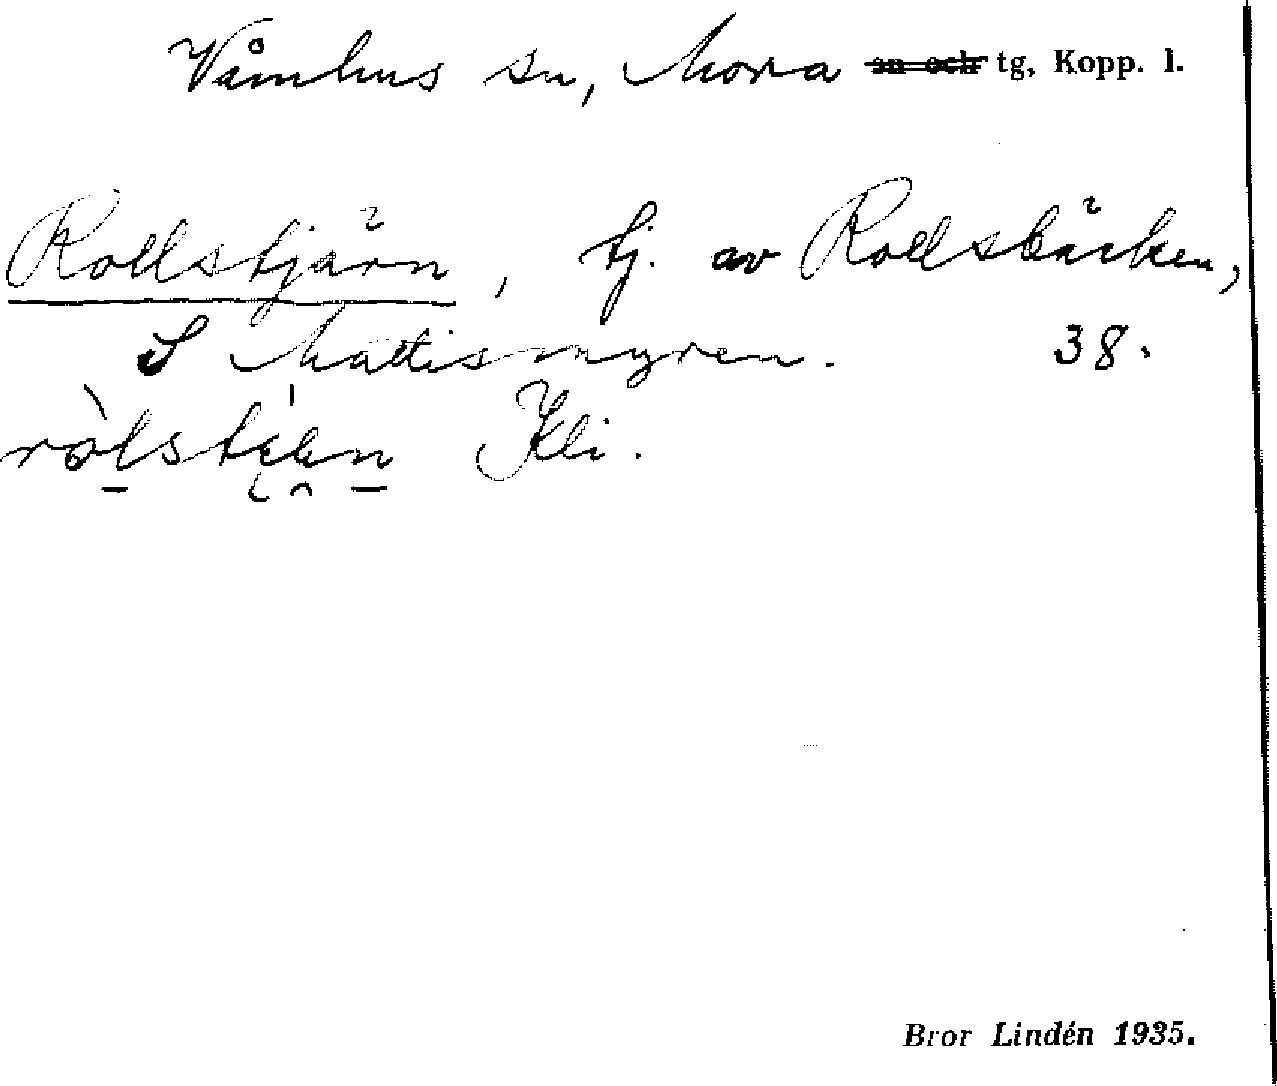 Våmhus sn, Mora sn och tg, Kopp. l.
Rollstjärn, tj. av Rollsbäcken,
S Mattismyren. 38.
Bror Lindén 1935.